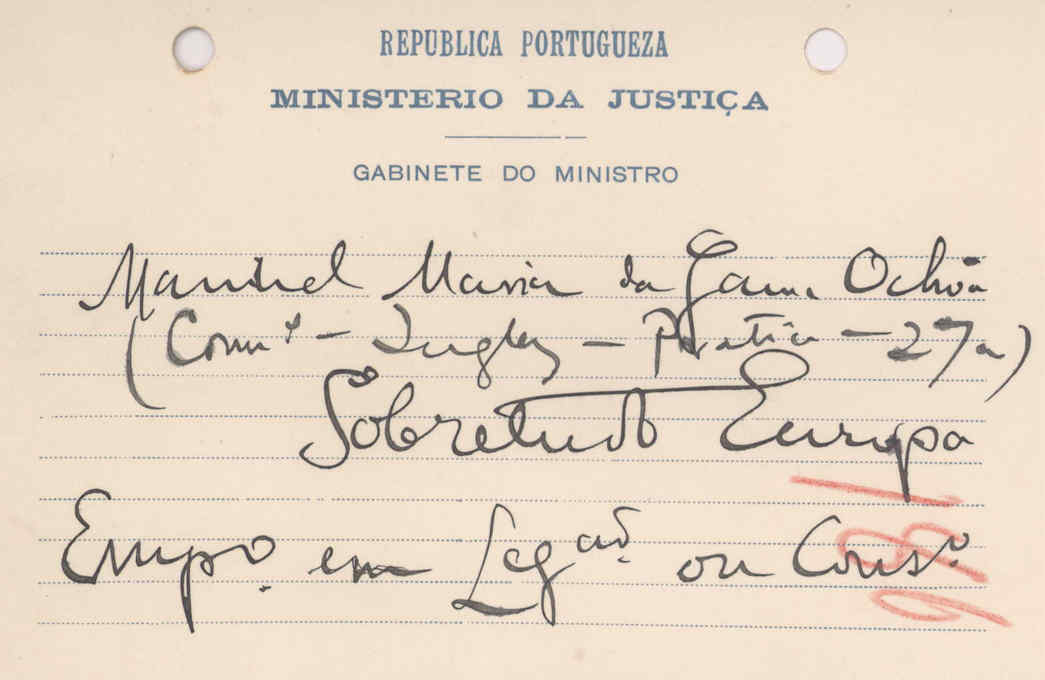 REPUBLICA PORTUGUEZA
MINISTERIO DA JUSTIÇA
GABINETE DO MINISTRO
Manuel Maria da Gama Ochôa
(Comte - Inglez - Pratica - 27a)
Sobretudo Europa
Empo. em Legação ou Conso.